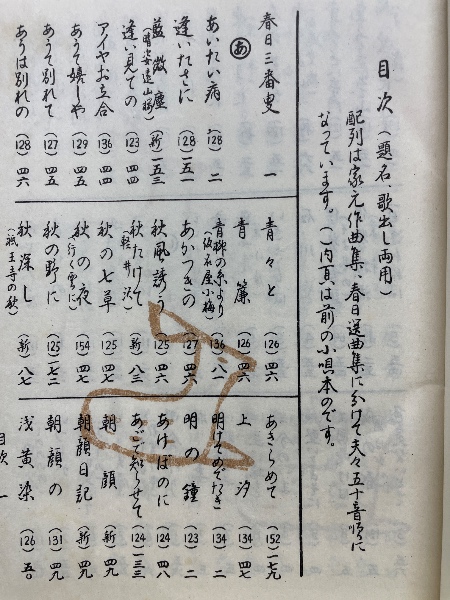 目次（題名、歌出し両用）
配列は家元作曲集、春日選曲集に分けて夫々五十音順に
なっています。（）内頁は前の小唄本のです。
春日三番叟 一
あ
あいたい病 (128) 二
逢いたさに (128) 一五一
藍微塵 (新) 一五三
(晴姿遠山桜)
逢い見ての (123) 四四
アイヤお立合 (136) 四四
あうて嬉しや (129) 四五
あうて別れて (127) 四五
あうは別れの (128) 四六
青々と (126) 四六
青簾 (126) 四六
青柳の糸より (136) 八一
(仮名屋小梅)
あかつきの (127) 四六
秋風誘う (125) 四六
秋たけて (新) 八三
(軽井沢)
秋の七草 (125) 四七
秋の夜 (154) 四七
(行く雲に)
秋の野に (125) 一五二
秋深し (新) 八七
(祇王寺の秋)
あきらめて (152) 一七九
上汐 (134) 四七
明けてめでたき (134) 二
明の鐘 (123) 二
あけぼのに (124) 四八
あごで知らせて (124) 一三三
朝顔 (新) 四九
朝顔日記 (新) 四九
朝顔の (131) 四九
浅黄染 (126) 五〇
目次 一